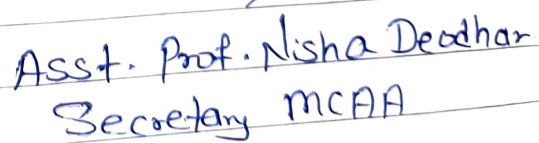 Asst. Prof. Nisha Deodhar
Secretary MCAA